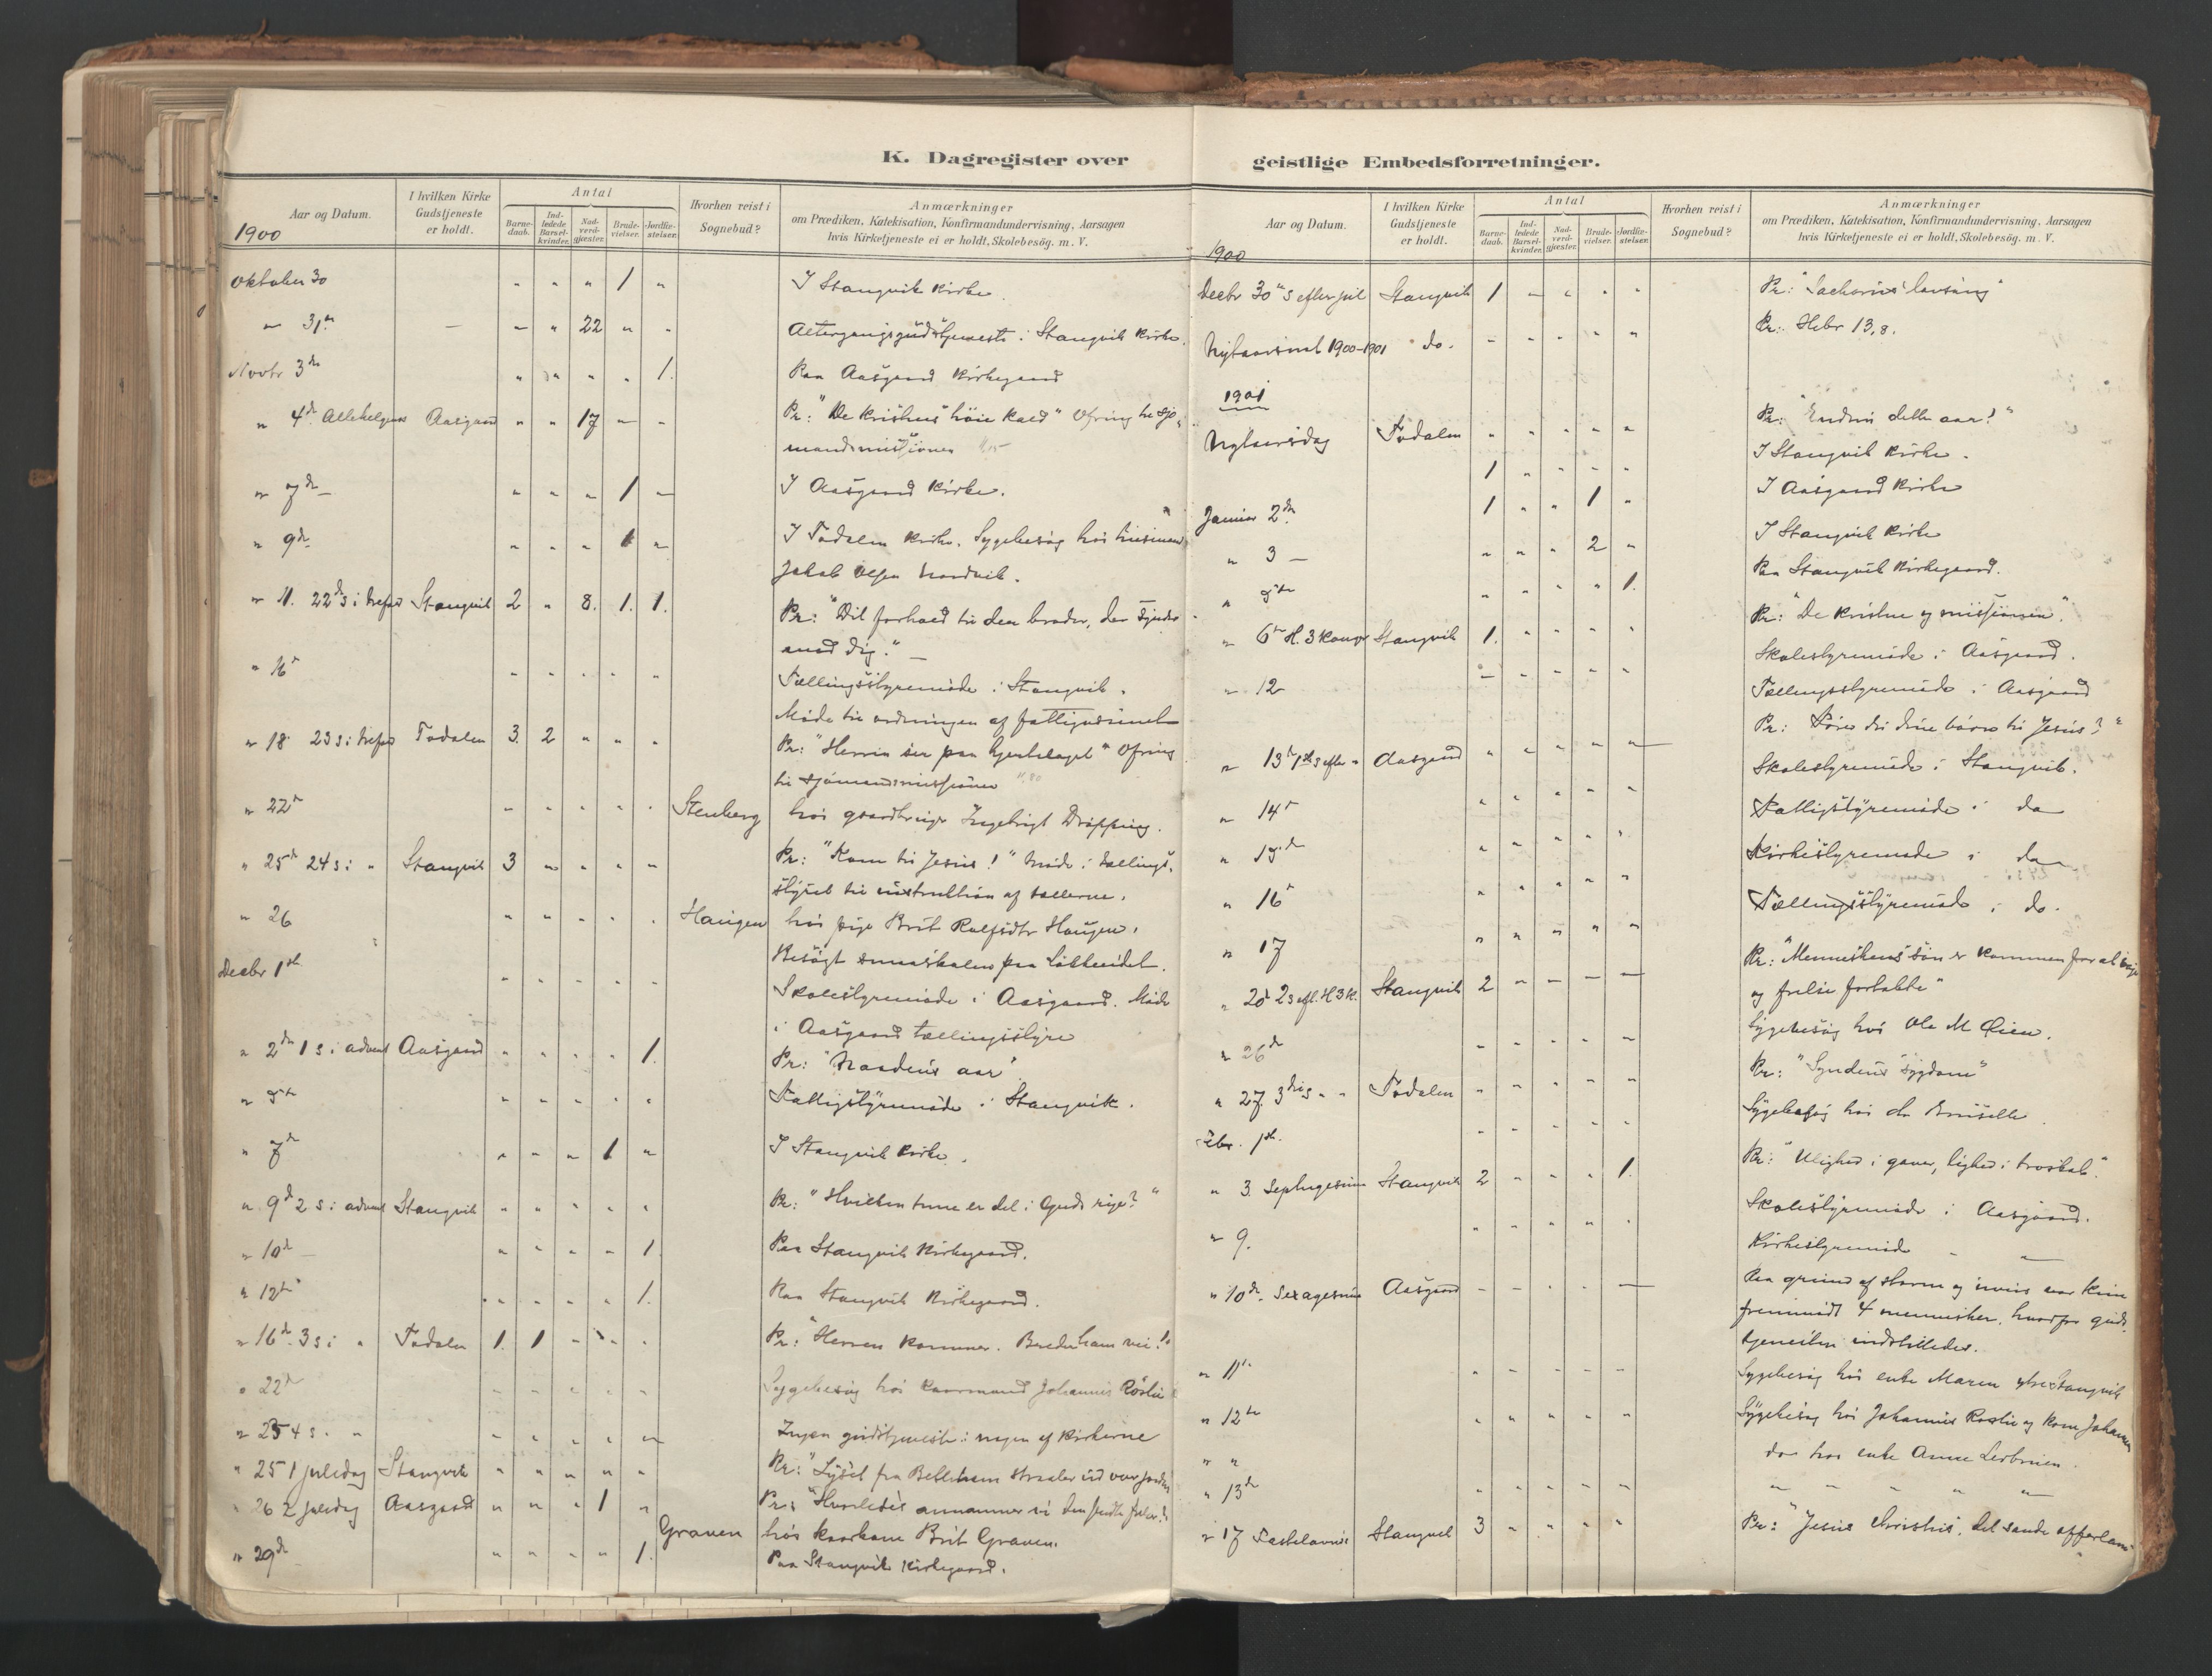 K. Dagregister over geistlige Embedsforretninger.
Aar og Datum. I hvilken Kirke Gudstjeneste er holdt. Antal Barnedaab. Indledede Barselkvinder. Nadverdgjæster. Brudevielser. Jordfæstelser. Hvorhen reist i Sognebud? Anmærkninger om Prædiken, Katekisation, Konfirmandundervisning, Aarsagen hvis Kirketjeneste ei er holdt, Skolebesög. m. V.
1900
Oktober 30 " " " 1 " I Stangvik kirke.
" 31te — — " 22 " " Altergangsgudstjeneste i Stangvik kirke.
Novbr 3die " " " " 1. Paa Aasgaard kirkegaard
" 4de Allehelgens Aasgaard " " 17 — " Pr: "De kristnes höie kald" Ofring til sjö-
mandsmissionen
" 7de — " " " 1 — I Aasgaard kirke.
" 9de " " " 1 " I Todalen kirke. Sygebesög hos husmand
Jakob Olsen Nordvik.
" 11. 22de s. i trefold Stangvik 2 " 8. 1. 1. Pr: "Dit forhold til den broder, der synder
mod dig." —
" 16de " " " " " Tællingsstyremöde i Stangvik.
Möde til ordningen af fattigvæsenet
" 18 23 s. i trefold Todalen 3. 2 " " " Pr: "Herren ser paa hjertelaget" Ofring
til sjömandsmissionen 11,80
" 22de " " " " " Stenberg hos gaardbruger Ingebrigt Dröpping.
" 25de 24 s. i " Stangvik 3 " " " " Pr: "Kom til Jesus!" Möde i tællings-
styret til instruktion af tællerne.
" 26 " " " " " Haugen hos pige Brit Rolfsdtr Haugen.
Decbr 1ste Besögt smaaskolen paa Løkkeidet.
" " " " " Skolestyremöde i Aasgaard. Möde
i Aasgaard tællingsstyre
" 2den 1 s. i advent Aasgaard " " " " 1. Pr: "Naadens aar"
" 5te " " " " " Fattigstyremöde i Stangvik.
" 7de " " " 1 " I Stangvik kirke.
" 9de 2 s. i advent Stangvik " " " " " Pr: "Hvilken tone er det i Guds rige?"
" 10de — " " " " 1 Paa Stangvik kirkegaard.
" 12te " " " " 1. Paa Stangvik kirkegaard.
" 16de 3 s. i " Todalen 1. 1 " " " Pr: "Herren kommer. Bered ham vei!"
" 22de " " " " " Sygebesög hos kaarmand Johannes Röslie
" 23 4 s. " " " " " " " Ingen gudstjeneste i nogen af kirkerne
" 25 1 juledag Stangvik " " " " " Pr: "Lyset fra Betlehem straaler ud over jorden
" 26 2 juledag Aasgaard " " " 1 " Pr: "Hvorledes annammer vi den födte frelser?"
Graven hos kaarkone Brit Graven.
" 29de — " " " " 1. Paa Stangvik kirkegaard.
Aar og Datum. I hvilken Kirke Gudstjeneste er holdt. Antal Barnedaab. Indledede Barselkvinder. Nadverdgjæster. Brudevielser. Jordfæstelser. Hvorhen reist i Sognebud? Anmærkninger om Prædiken, Katekisation, Konfirmandundervisning, Aarsagen hvis Kirketjeneste ei er holdt, Skolebesög. m. V.
1900
Decbr 30te s. efter jul Stangvik 1 — " " " Pr: "Sacharias' lovsang"
Nytaarsnat 1900-1901 do. " " " " " Pr: Hebr 13,8.
1901
Nytaarsdag Todalen " " " " " Pr: "Endnu dette aar!"
1 " " " " I Stangvik kirke.
Januar 2den 1 " " 1 " I Aasgaard kirke
" 3 — " " " 2 " I Stangvik kirke
" 5te " " " " 1. Paa Stangvik kirkegaard.
" 6te H. 3 konger Stangvik 1. " " " " Pr: "De kristne og missionen".
" 12 — " " " " Skolestyremöde i Aasgaard.
Tællingsstyremöde i Aasgaard
" 13de 1ste s. efter " Aasgaard " " " " — Pr: Förer du dine börn til Jesus?"
" 14de " " " " " Skolestyremöde i Stangvik.
" 15de " " " " " Fattigstyremöde i do
" 16de " " " " " Kirkestyremöde i do
" 17 " " " " " Tællingsstyremöde i do.
" 20de 2 s. eft. H 3 K. Stangvik 2 " — — — Pr: "Menneskens sön er kommen for at söge
og frelse fortabte"
" 26de " " " " " Sygebesög hos Ole M Öien.
" 27. 3die s. " " Todalen " " " " " Pr: "Syndens sygdom"
Febr. 1ste " " " " " Sygebesög hos do
" 3. Septuagesima Stangvik 2 " " " 1. Pr: "Ulighed i gaver, lighed i troskab."
" 9. " " " " " Skolestyremöde i Aasgaard.
Kirkestyremöde " "
" 10de Sexagesima Aasgaard — — " " — Paa grund af storm og uveir var kun
fremmödt 4 mennesker, hvorfor guds-
tjenesten indstilledes.
" 11te " " " " " Sygebesög hos enke Maren ytre Stangvik
" 12te " " " " " Sygebesög hos Johannes Röslie og kone Johanna
" " do hos enke Anne
" 13de " " " " " " " " " "
" 17 Fastelavns Stangvik 3 " " " " Pr: "Jesus Christus, det sande offerlam"